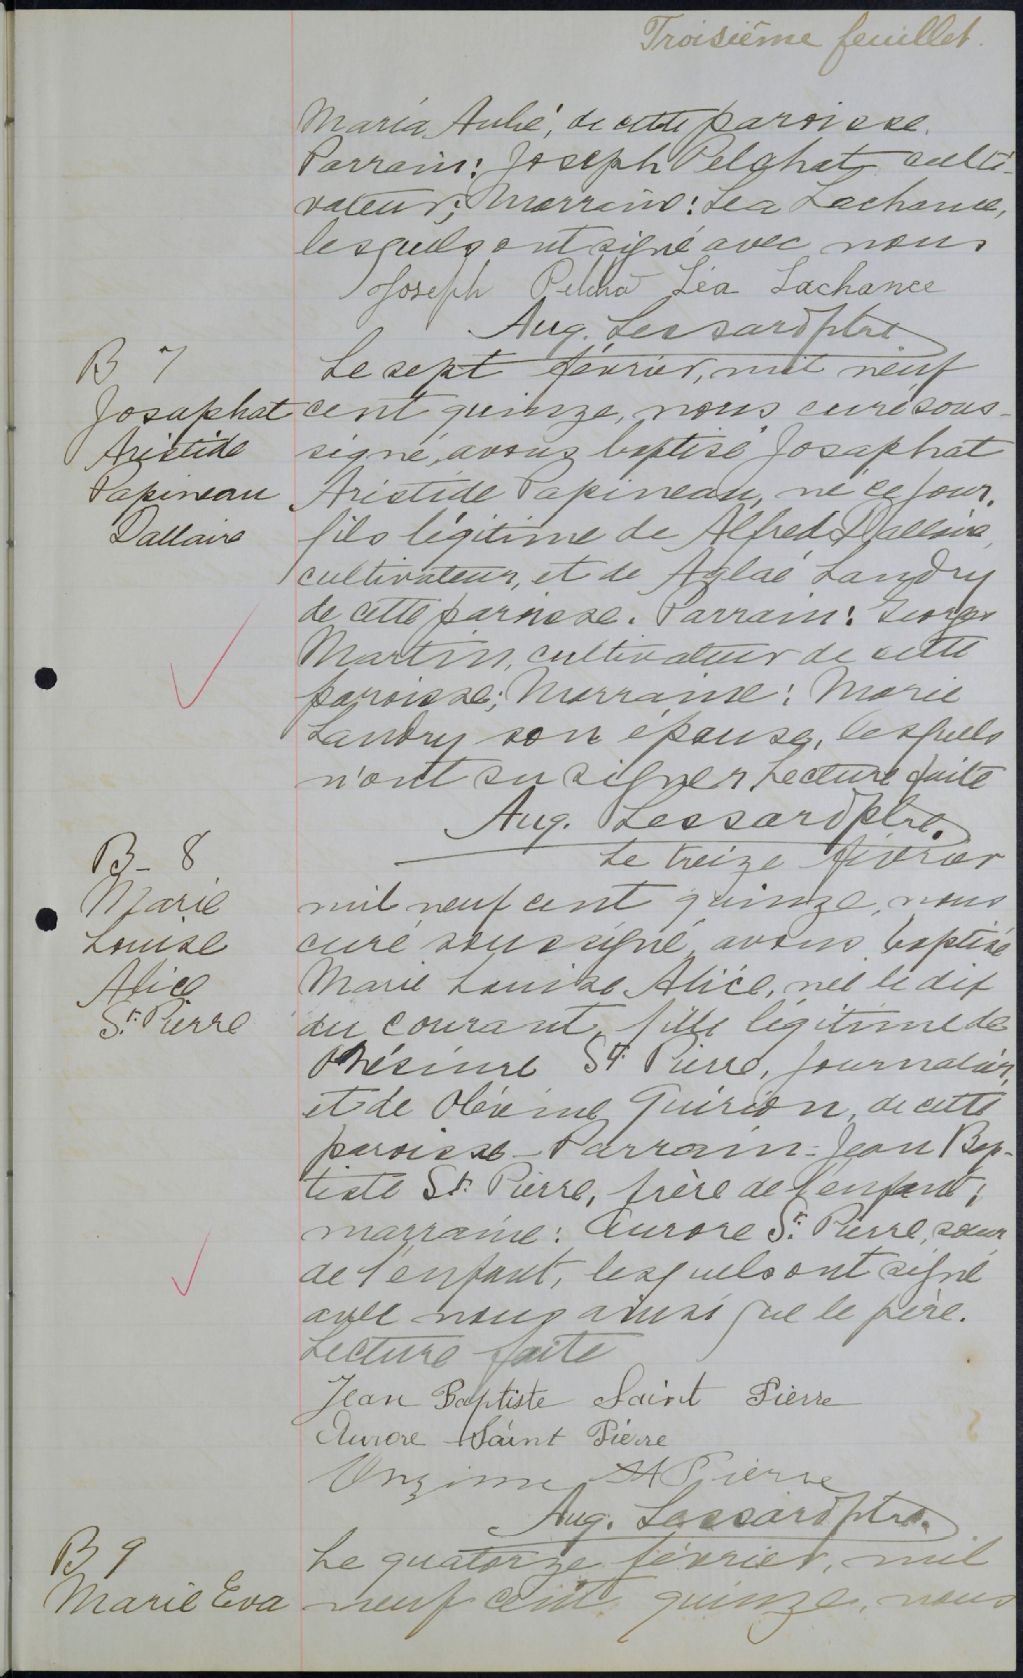 Troisième feuillet.
Maria Aubé, de cette paroisse.
Parrain: Joseph Pelchat culti-
vateur; Marraine: Léa Lachance,
lesquels ont signé avec nous
Joseph Pelcha Léa Lachance
Aug. Lessard ptre
B 7
Josaphat
Aristide
Papineau
Dallaire
Le sept février, mil neuf
cent quinze, nous curé sous-
signé, avons baptisé Josaphat
Aristide Papineau, né ce jour,
fils légitime de Alfred Dallaire,
cultivateur, et de Aglaé Landry
de cette paroisse. Parrain: George
Martin, cultivateur de cette
paroisse; Marraine: Marie
Landry son épouse, lesquels
n'ont su signer. Lecture faite
Aug. Lessard ptre.
B - 8
Marie
Louise
Alice
St. Pierre
Le treize février
mil neuf cent quinze, nous
curé soussigné, avons baptisé
Marie Louise Alice, née le dix
du courant, fille légitime de
Onésime St. Pierre, journalier,
et de Olévine Guérion, de cette
paroisse - Parrain: Jean Bap-
tiste St. Pierre, frère de l'enfant;
marraine: Aurore St. Pierre, sœur
de l'enfant, lesquels ont signé
avec nous ainsi que le père.
Lecture faite
Jean Baptiste Saint Pierre
Aurore Saint Piérre
Onzime St Pierre
Aug. Lessard ptre.
B 9
Marie Eva
Le quatorze février, mil
neuf cent quinze, nous